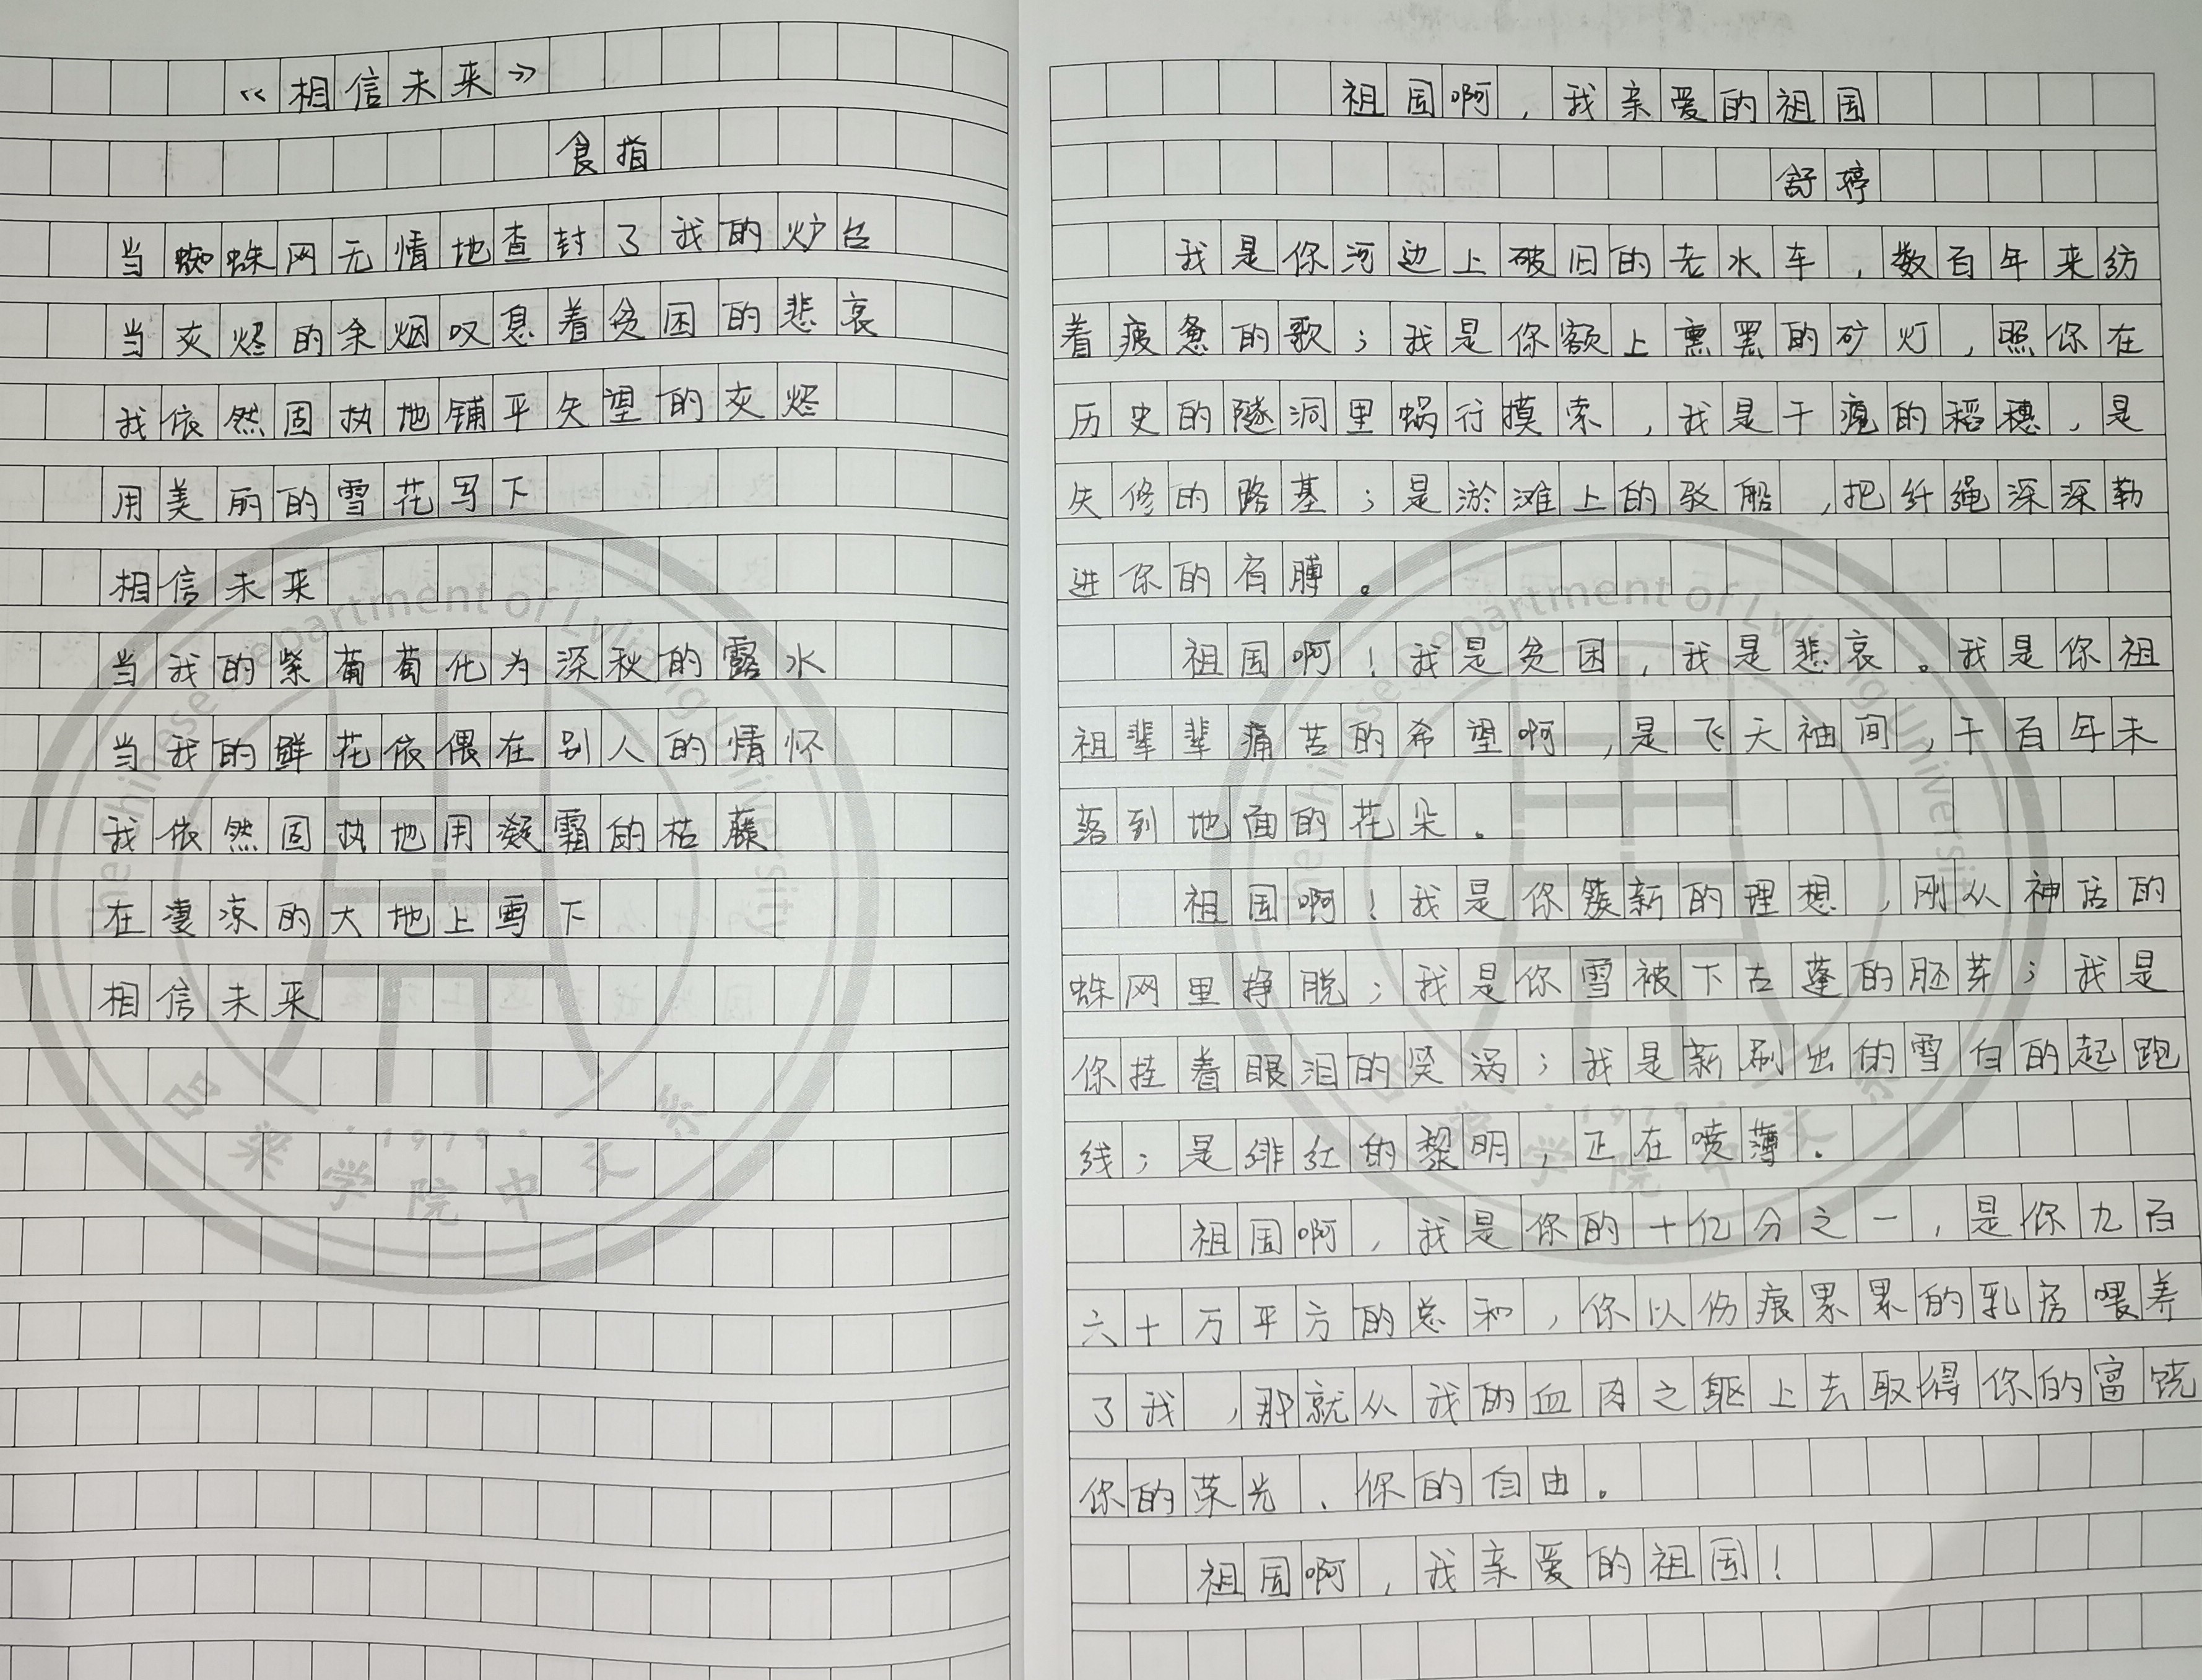 《相信未来》
食指
当蜘蛛网无情地查封了我的炉台
当灰烬的余烟叹息着贫困的悲哀
我依然固执地铺平失望的灰烬
用美丽的雪花写下
相信未来
当我的紫葡萄化为深秋的露水
当我的鲜花依偎在别人的情怀
我依然固执地用凝霜的枯藤
在凄凉的大地上写下
相信未来
The Chinese Department of Lvliang University
·1979·
吕梁学院中文系
祖国啊，我亲爱的祖国
舒婷
我是你河边上破旧的老水车，数百年来纺
着疲惫的歌；我是你额上熏黑的矿灯，照你在
历史的隧洞里蜗行摸索，我是干瘪的稻穗，是
失修的路基；是淤滩上的驳船，把纤绳深深勒
进你的肩膊。
祖国啊！我是贫困，我是悲哀。我是你祖
祖辈辈痛苦的希望啊，是飞天袖间，千百年未
落到地面的花朵。
祖国啊！我是你簇新的理想，刚从神话的
蛛网里挣脱；我是你雪被下古莲的胚芽；我是
你挂着眼泪的笑涡；我是新刷出的雪白的起跑
线；是绯红的黎明，正在喷薄。
祖国啊，我是你的十亿分之一，是你九百
六十万平方的总和，你以伤痕累累的乳房喂养
了我，那就从我的血肉之躯上去取得你的富饶
你的荣光、你的自由。
祖国啊，我亲爱的祖国！
The Chinese Department of Lvliang University
·1979·
吕梁学院中文系